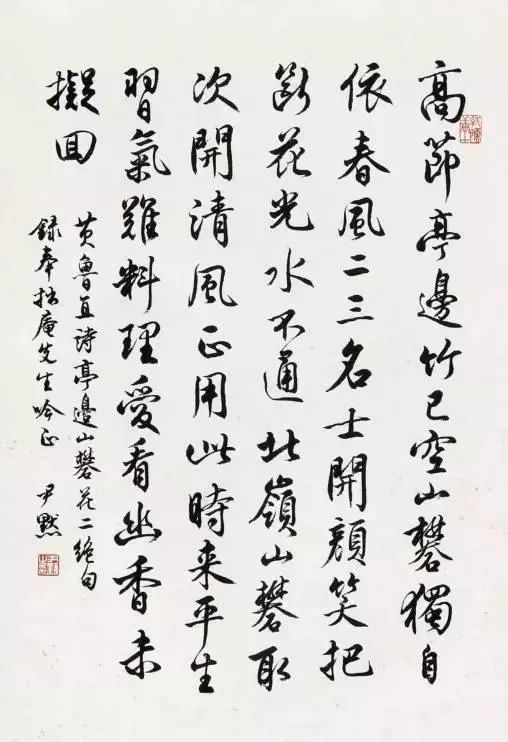 高節亭邊竹已空山礬獨自
依春風二三名士開顔笑把
斷花光水不通北嶺山礬取
次開清風正用此時来平生
習氣難料理愛看幽香未
擬回
黄魯直詩亭邊山礬花二絶句
録奉拙庵先生吟正 尹默